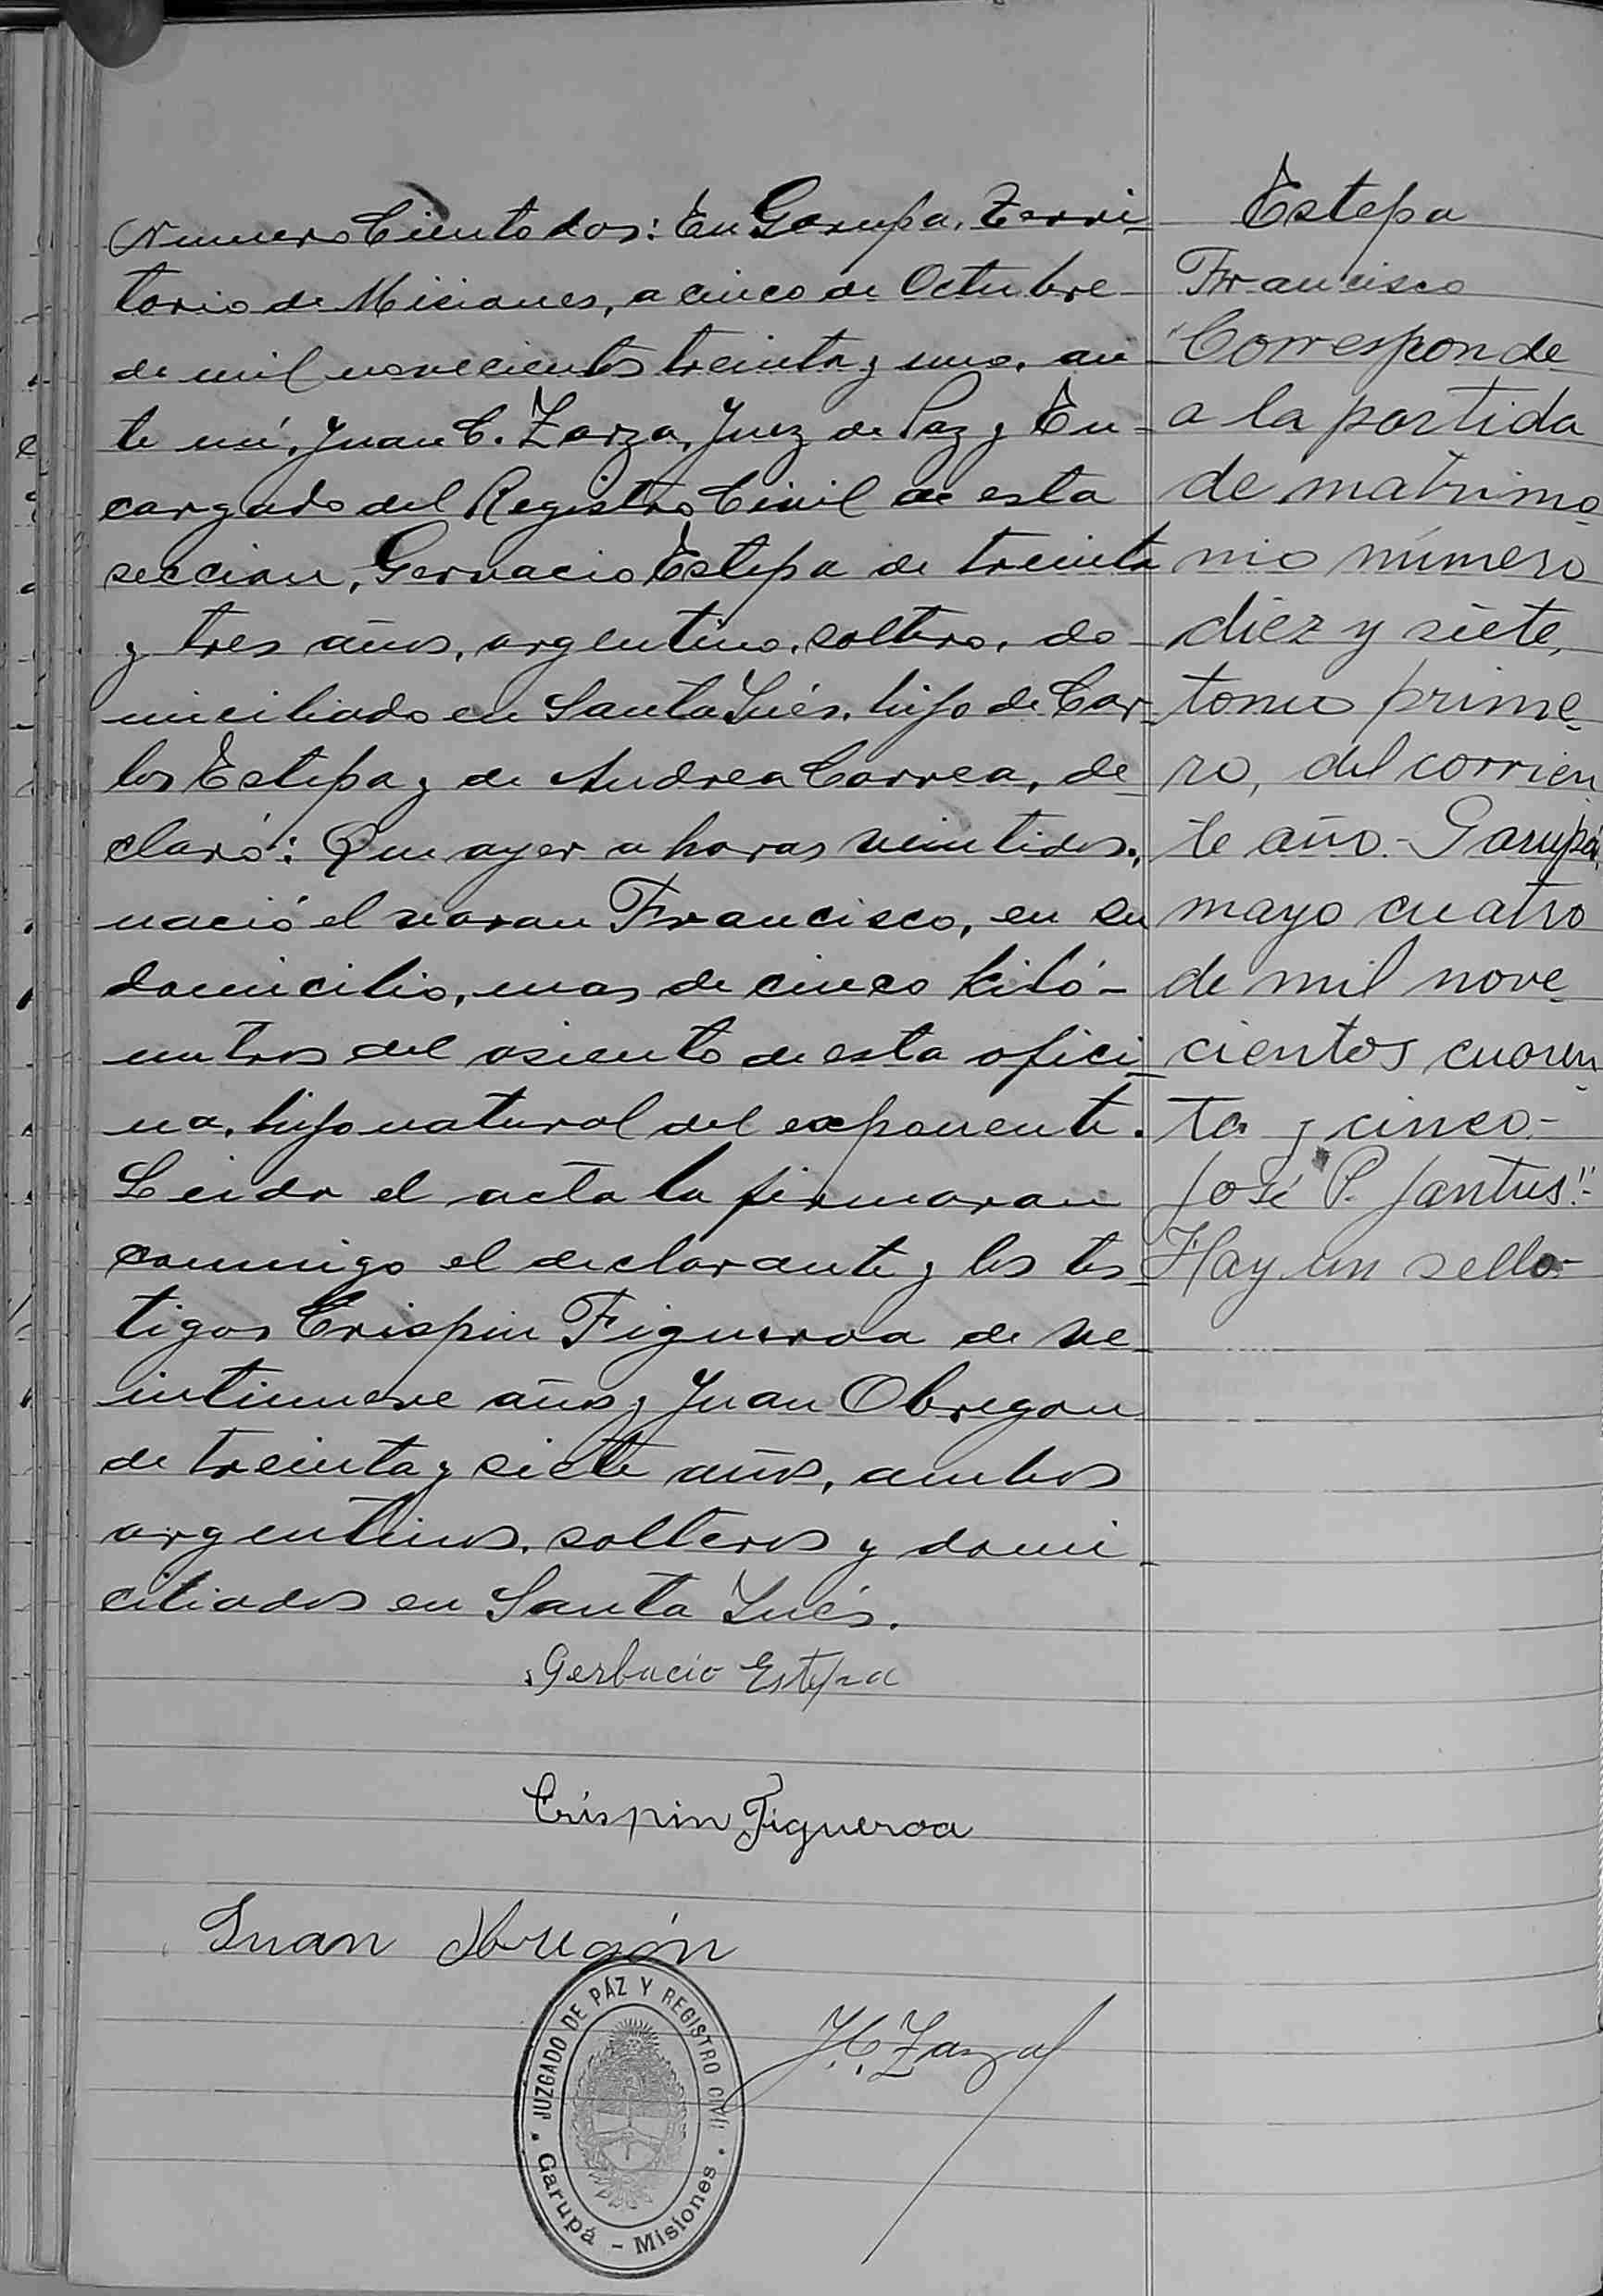 Numero Ciento dos: En Garupa, Terri-
torio de Misiones, a cinco de Octubre
de mil novecientos treinta y uno, an-
te mi, Juan C. Zarza, Juez de Paz y En-
cargado del Registro Civil de esta
seccion, Gervacio Estepa de treinta
y tres años, argentino, soltero, do-
miciliado en Santa Inés, hijo de Car-
los Estepa y de Andrea Correa, de-
claró: Que ayer a horas veintidos,
nació el varon Francisco, en su
domicilio, mas de cinco kiló-
metros del asiento de esta ofici-
na, hijo natural del exponente.
Leida el acta la firmaron
conmigo el declarante y los tes-
tigos Crispin Figueroa de ve-
intinueve años y Juan Obregon
de treinta y siete años, ambos
argentinos, solteros y domi-
ciliados en Santa Inés.
Gerbacio Estepa
Crispin Figueroa
Juan Obregón
J. C. Zarza
JUZGADO DE PAZ Y REGISTRO CIVIL
Garupá - Misiones
Estepa
Francisco
"Corresponde
a la partida
de matrimo-
nio número
diez y siete,
tomo prime-
ro, del corrien-
te año.- Garupá,
mayo cuatro
de mil nove-
cientos cuaren-
ta y cinco.-
José P. Jantus".-
Hay un sello.-